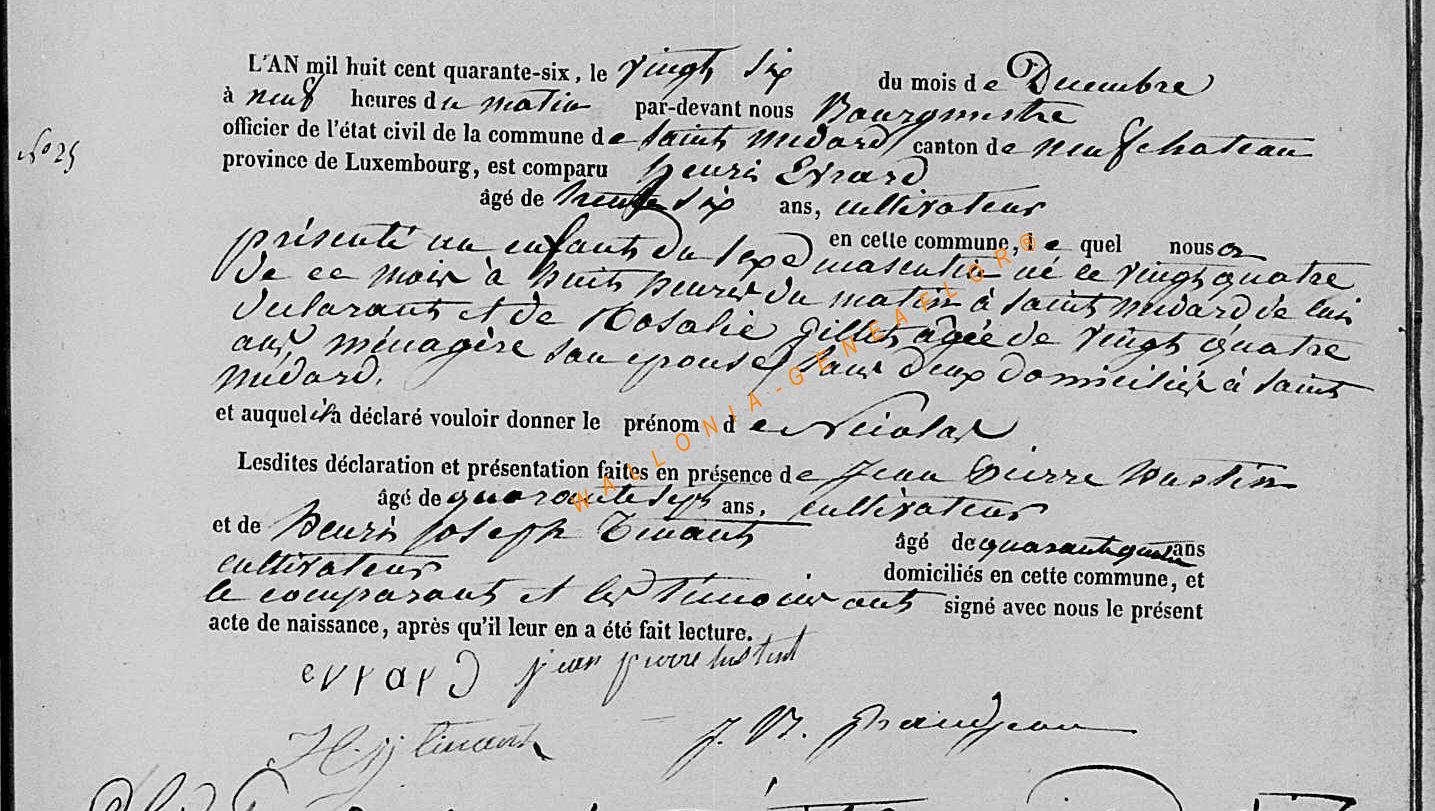 L'AN mil huit cent quarante-six, le vingt six du mois de Decembre
à neuf heures du matin par-devant nous Bourgmestre
officier de l'état civil de la commune de Saint Medard canton de neufchateau
No 25
province de Luxembourg, est comparu henri Evrard
âgé de trente six ans, cultivateur
en cette commune, le quel nous a
présenté un enfant du sexe masculin né ce vingt quatre
de ce mois à huit heures du matin à Saint Medard de lui
declarant et de Rosalie Gillet âgée de vingt quatre
ans, ménagère son epouse, tous deux domiciliés à Saint
Medard.
et auquel il a déclaré vouloir donner le prénom de Nicolas
Lesdites déclaration et présentation faites en présence de Jean Pierre
âgé de quarante sept ans, cultivateur
et de henri joseph Tinant âgé de quarante ans
cultivateur domiciliés en cette commune, et
le comparant et les témoins ont signé avec nous le présent
acte de naissance, après qu'il leur en a été fait lecture.
evrard jean pierre
H. j tinant J. Grandjean
WALLONIA-GENEAFLOR®